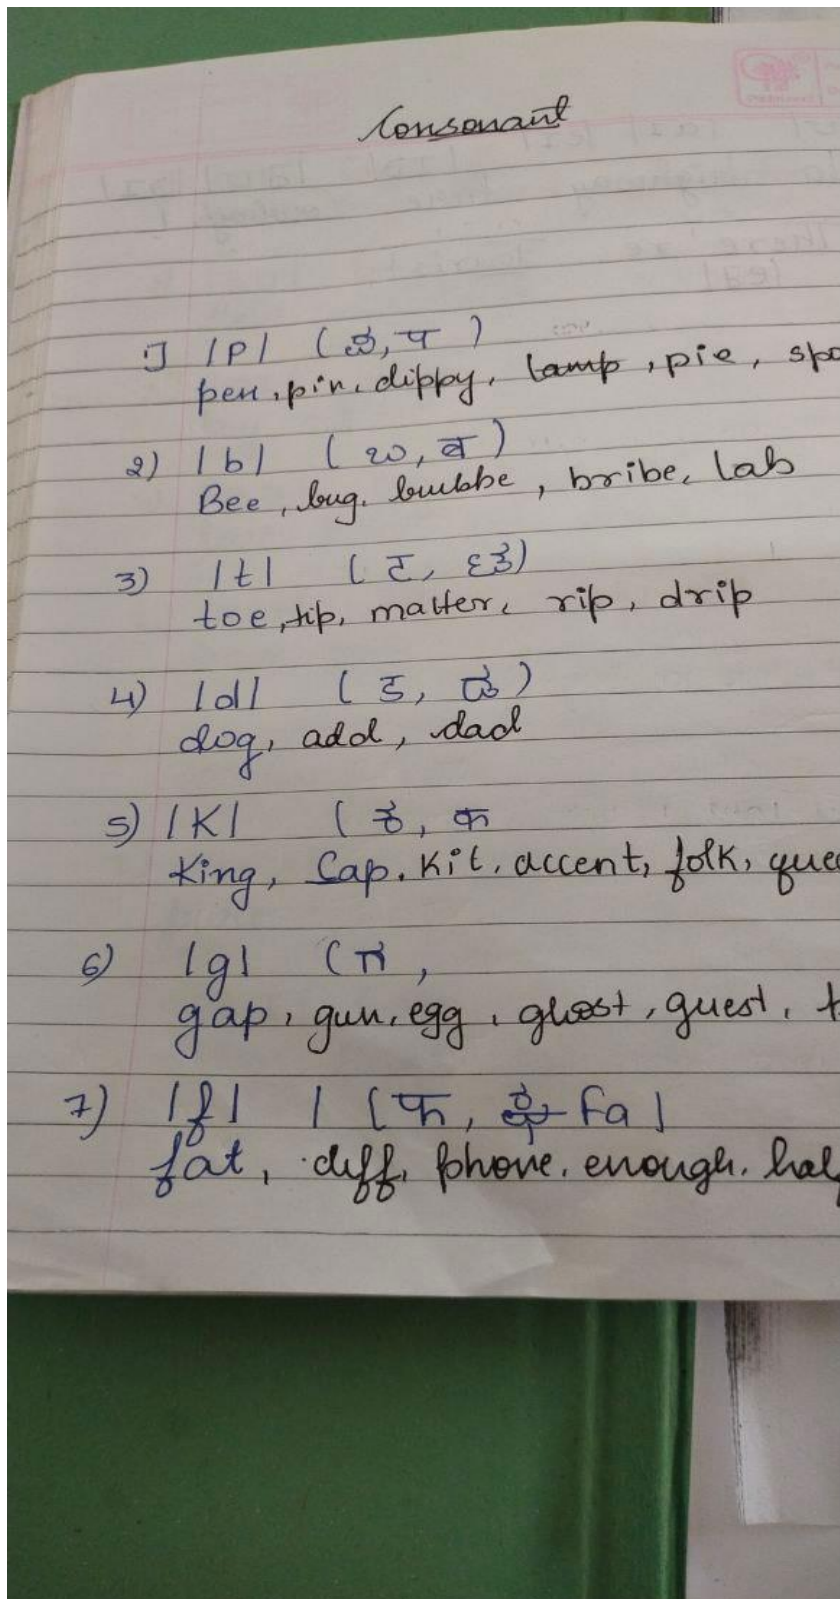 Consonant
1] |p| (ಪ, प)
pen, pin, dippy, lamp, pie,
2) |b| (ಬ, ब)
Bee, bug, bubbe, bribe, Lab
3) |t| (ट, ಟ)
toe, tip, matter, rip, drip
4) |d| (ड, ಡ)
dog, add, dad
5) |K| (ಕ, क
King, Cap, Kit, accent, folk,
6) |g| (ಗ,
gap, gun, egg, ghost, guest,
7) |f| | [फ, Fa]
fat, diff, phone, enough,